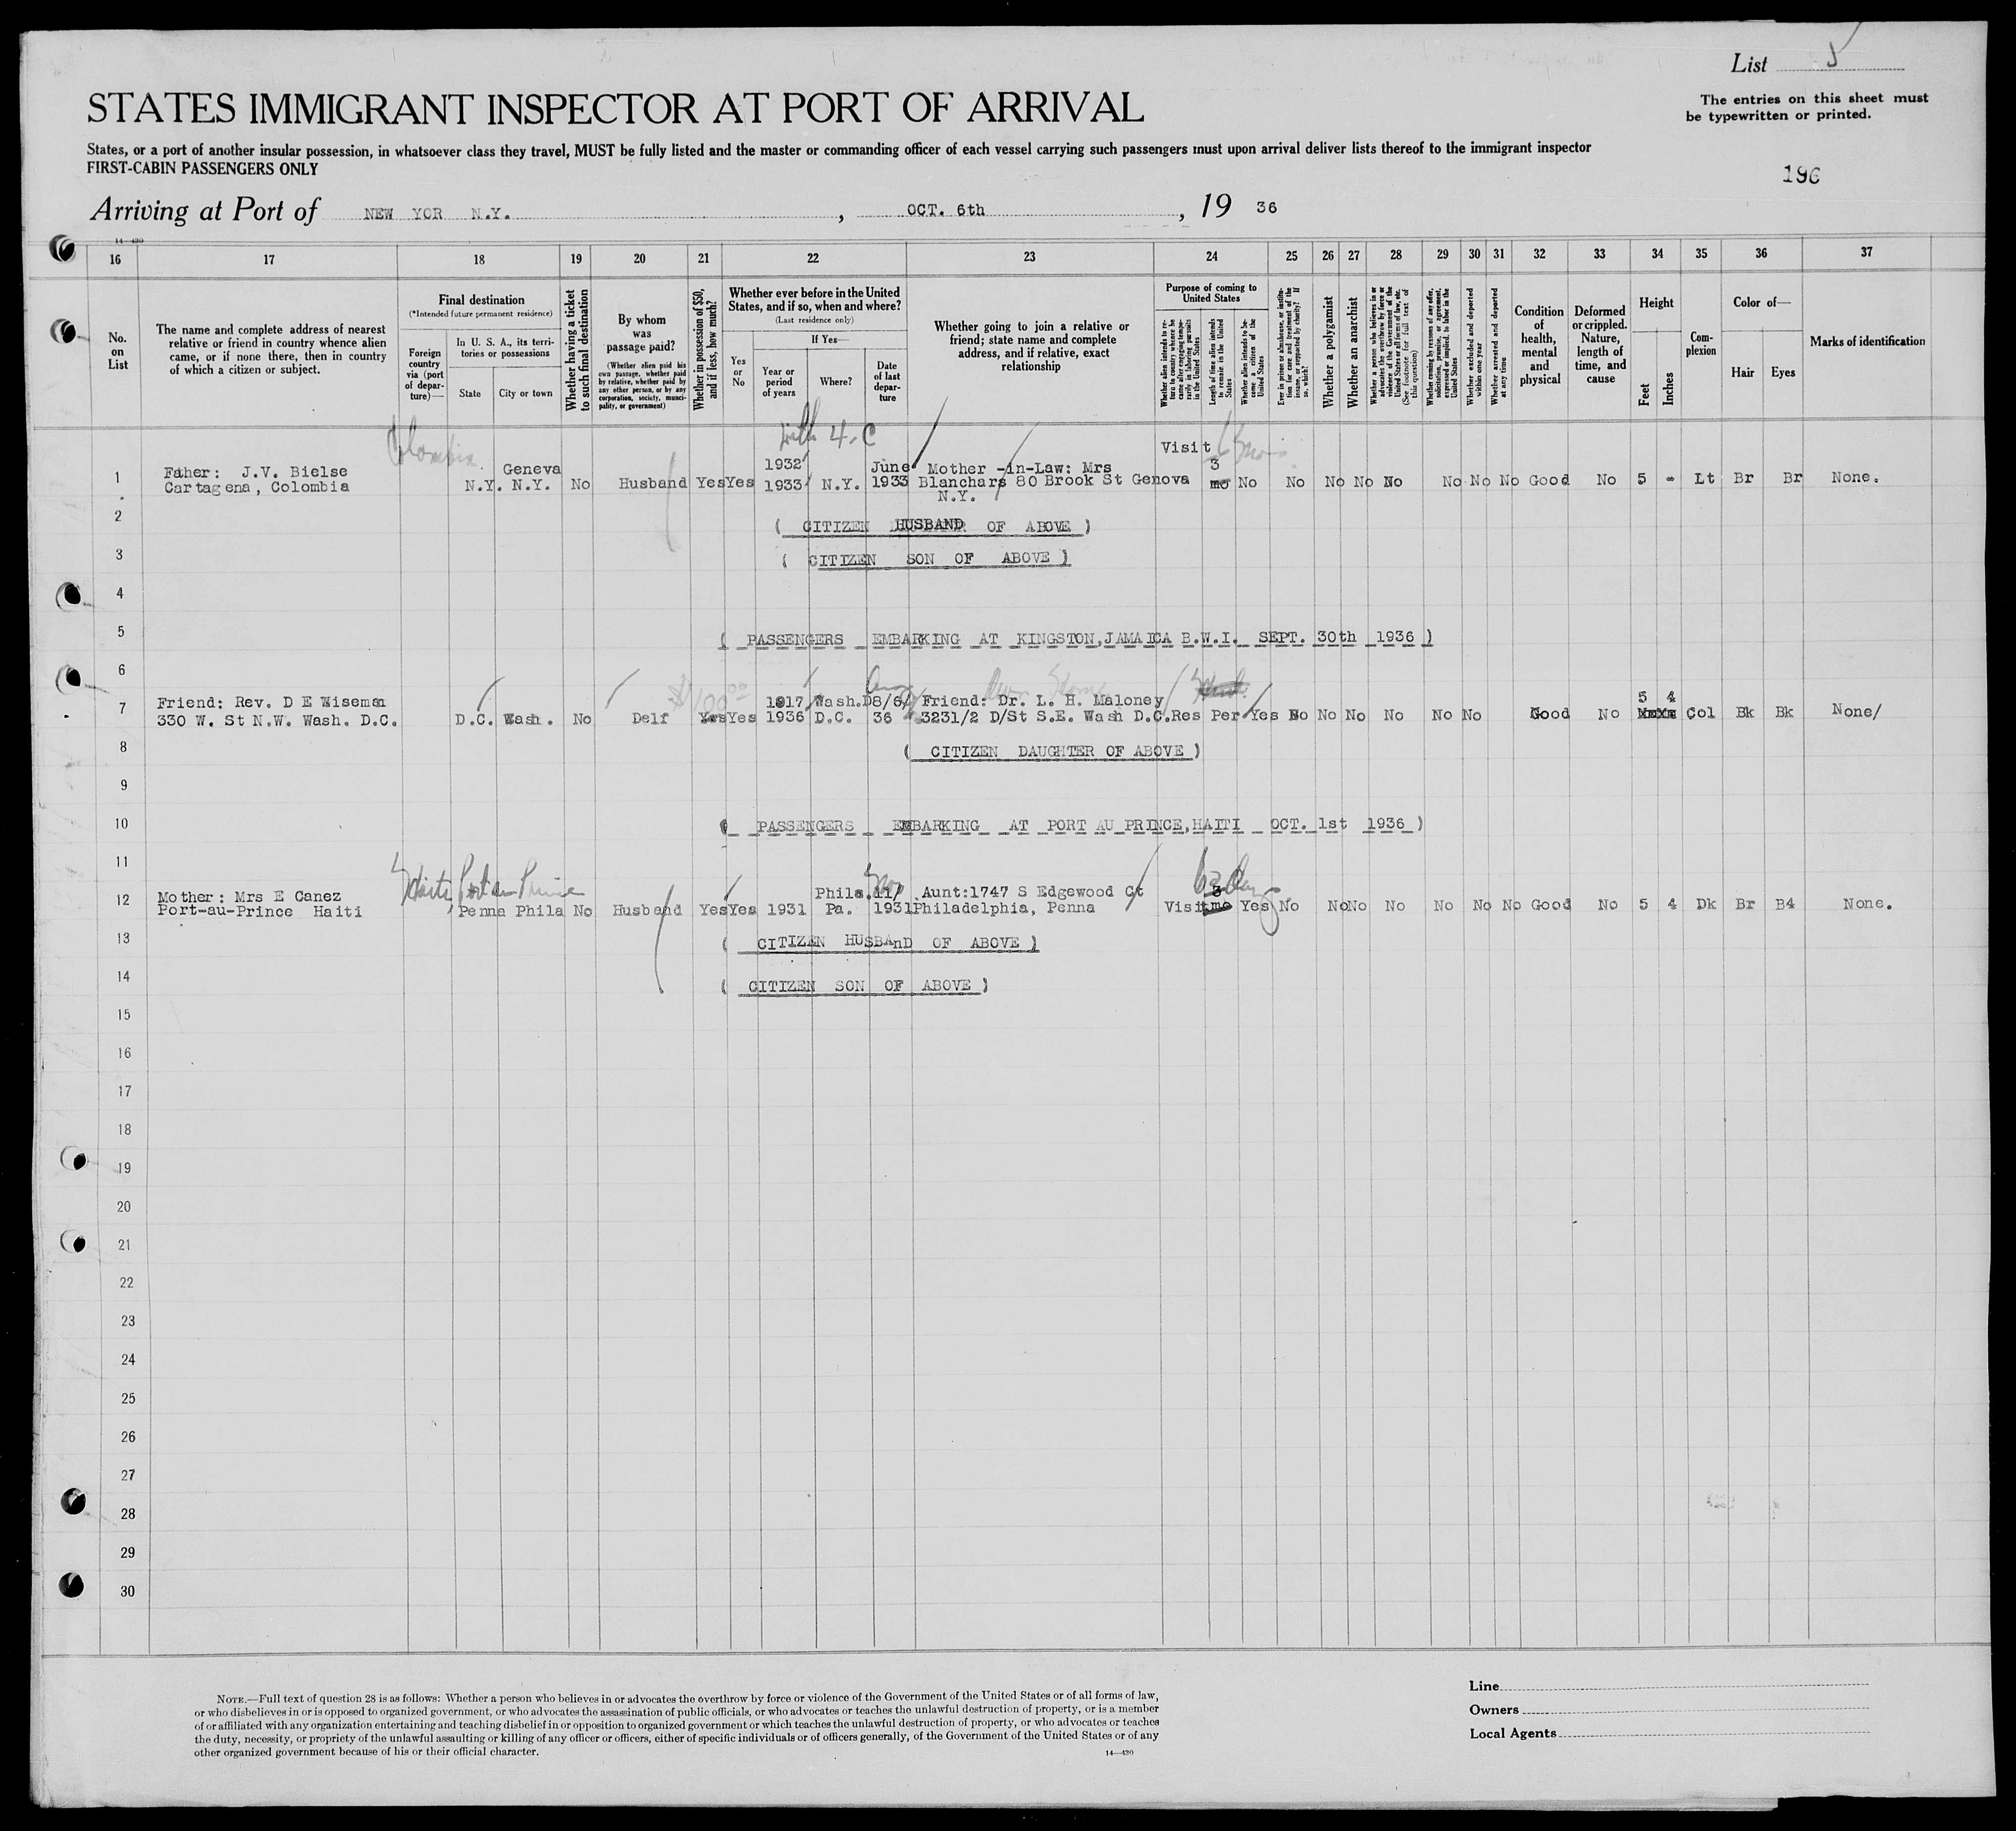 List 5
STATES IMMIGRANT INSPECTOR AT PORT OF ARRIVAL
The entries on this sheet must
be typewritten or printed.
States, or a port of another insular possession, in whatsoever class they travel, MUST be fully listed and the master or commanding officer of each vessel carrying such passengers must upon arrival deliver lists thereof to the immigrant inspector
FIRST-CABIN PASSENGERS ONLY
196
Arriving at Port of NEW YOR N.Y. , OCT. 6th , 19 36
14—430
16 17 18 19 20 21 22 23 24 25 26 27 28 29 30 31 32 33 34 35 36 37
No.
on
List
The name and complete address of nearest
relative or friend in country whence alien
came, or if none there, then in country
of which a citizen or subject.
Final destination
(*Intended future permanent residence)
Foreign
country
via (port
of depar-
ture)—
In U. S. A., its terri-
tories or possessions
State
City or town
Whether having a ticket
to such final destination
By whom
was
passage paid?
(Whether alien paid his
own passage, whether paid
by relative, whether paid by
any other person, or by any
corporation, society, munici-
pality, or government)
Whether in possession of $50,
and if less, how much?
Whether ever before in the United
States, and if so, when and where?
(Last residence only)
Yes
or
No
If Yes—
Year or
period
of years
Where?
Date
of last
depar-
ture
Whether going to join a relative or
friend; state name and complete
address, and if relative, exact
relationship
Purpose of coming to
United States
Whether alien intends to re-
turn to country whence he
came after engaging tempo-
rarily in laboring pursuits
in the United States
Length of time alien intends
to remain in the United
States
Whether alien intends to be-
come a citizen of the
United States
Ever in prison or almshouse, or institu-
tion for care and treatment of the
insane, or supported by charity? If
so, which?
Whether a polygamist
Whether an anarchist
Whether a person who believes in or
advocates the overthrow by force or
violence of the Government of the
United States or all forms of law, etc.
(See footnote for full text of
this question)
Whether coming by reasons of any offer,
solicitation, promise, or agreement,
expressed or implied, to labor in the
United States
Whether excluded and deported
within one year
Whether arrested and deported
at any time
Condition
of
health,
mental
and
physical
Deformed
or crippled.
Nature,
length of
time, and
cause
Height
Feet
Inches
Com-
plexion
Color of—
Hair
Eyes
Marks of identification
Colombia
4-C
Visit
1 Father: J.V. Bielse Geneva 1932 June Mother -in-Law: Mrs 3
Cartagena, Colombia N.Y. N.Y. No Husband Yes Yes 1933 N.Y. 1933 Blanchars 80 Brook St Genova mo No No No No No No No No Good No 5 - Lt Br Br None.
N.Y.
2 ( CITIZEN HUSBAND OF ABOVE )
3 ( CITIZEN SON OF ABOVE )
4
5 ( PASSENGERS EMBARKING AT KINGSTON,JAMAICA B.W.I. SEPT. 30th 1936 )
6
$100.00
7 Friend: Rev. D E Wiseman 1917 Wash.D 8/6/ Friend: Dr. L. H. Maloney 5 4
330 W. St N.W. Wash. D.C. D.C. Wash. No Delf Yes Yes 1936 D.C. 36 3231/2 D/St S.E. Wash D.C. Res Per Yes No No No No No No Good No Col Bk Bk None/
8 ( CITIZEN DAUGHTER OF ABOVE )
9
10 ( PASSENGERS EMBARKING AT PORT AU PRINCE,HAITI OCT. 1st 1936 )
11
Haiti Port au Prince Nov
12 Mother: Mrs E Canez Phila. 11/ Aunt:1747 S Edgewood Ct 3
Port-au-Prince Haiti Penna Phila No Husband Yes Yes 1931 Pa. 1931 Philadelphia, Penna Visit mo Yes No No No No No No No Good No 5 4 Dk Br B4 None.
13 ( CITIZEN HUSBAnD OF ABOVE )
14 ( CITIZEN SON OF ABOVE )
15
16
17
18
19
20
21
22
23
24
25
26
27
28
29
30
NOTE.—Full text of question 28 is as follows: Whether a person who believes in or advocates the overthrow by force or violence of the Government of the United States or of all forms of law,
or who disbelieves in or is opposed to organized government, or who advocates the assassination of public officials, or who advocates or teaches the unlawful destruction of property, or is a member
of or affiliated with any organization entertaining and teaching disbelief in or opposition to organized government or which teaches the unlawful destruction of property, or who advocates or teaches
the duty, necessity, or propriety of the unlawful assaulting or killing of any officer or officers, either of specific individuals or of officers generally, of the Government of the United States or of any
other organized government because of his or their official character.
14—430
Line
Owners
Local Agents